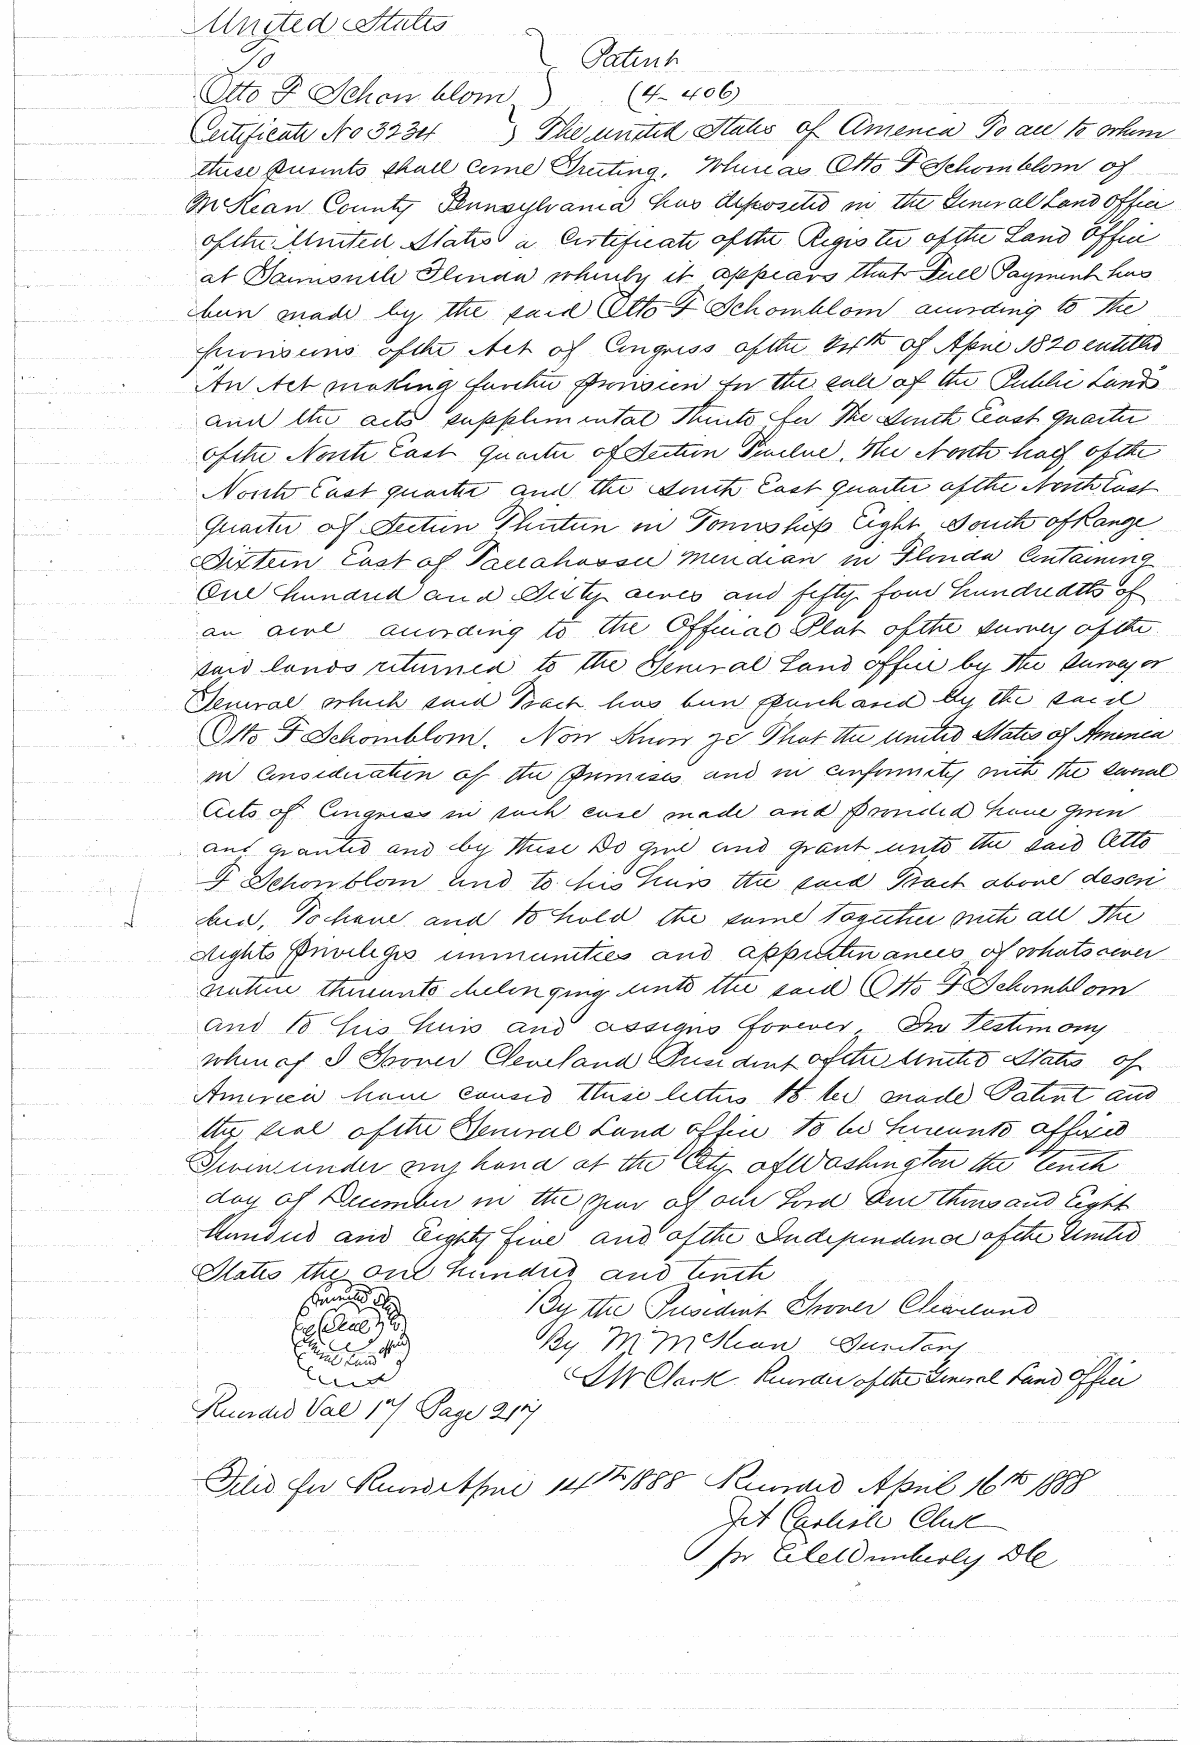 United States
To
Patent
Otto F Schon blom
(4-406)
Certificate No 3234 The united States of America To all to whom
these presents shall come Greeting. Whereas Otto F Schomblom of
McKean County Pennsylvania has deposited in the General Land office
of the United States a Certificate of the Register of the Land Office
at Gainsville Florida whereby it appears that Full Payment has
been made by the said Otto F Schomblom according to the
provisions of the Act of Congress of the 24th of April 1820 entitled
"An Act making further provision for the sale of the Public Lands"
and the acts supplimental thereto for The South East quarter
of the North East quarter of Section Twelve. The North half of the
North East quarter and the South East quarter of the North East
quarter of Section Thirteen in Township Eight South of Range
Sixteen East of Tallahassee Meridian in Florida Containing
One hundred and Sixty acres and fifty four hundredths of
an acre according to the Official Plat of the survey of the
said lands returned to the General Land office by the Surveyor
General which said Tract has been purchased by the said
Otto F Schomblom. Now Know ye That the united States of America
in Consideration of the premises and in conformity with the several
Acts of Congress in such case made and provided have given
and granted and by these Do give and grant unto the said Otto
F Schonblom and to his heirs the said Tract above descri
bed, To have and to hold the same together with all the
rights privileges immunities and appurtinances of whatsoever
nature thereunto belonging unto the said Otto F Schomblom
and to his heirs and assigns forever. In Testimony
whereof I Grover Cleveland President of the United States of
America have caused these letters to be made Patent and
the seal of the General Land office to be hereunto affixed
Given under my hand at the City of Washington the tenth
day of December in the year of our Lord One thousand Eight
Hundred and Eighty five and of the Independence of the United
States the one hundred and tenth
By the President Grover Cleveland
By M McKean Secretary
S W Clark. Recorder of the General Land Office
Recorded Vol 17 Page 217
Filed for Record April 14th 1888 Recorded April 16th 1888
Jet Carlisle Clerk
pr Wimberly DC